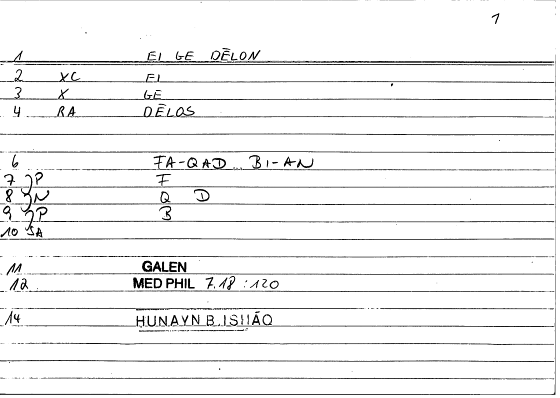 1
1 EI GE DĒLON
2 XC EI
3 X GE
4 RA DĒLOS
6 FA-QAD BI-AN
7 P F
8 N Q D
9 P B
10 SA
11 GALEN
12 MED PHIL 7.18 :120
14 HUNAYN B. ISHĀQ